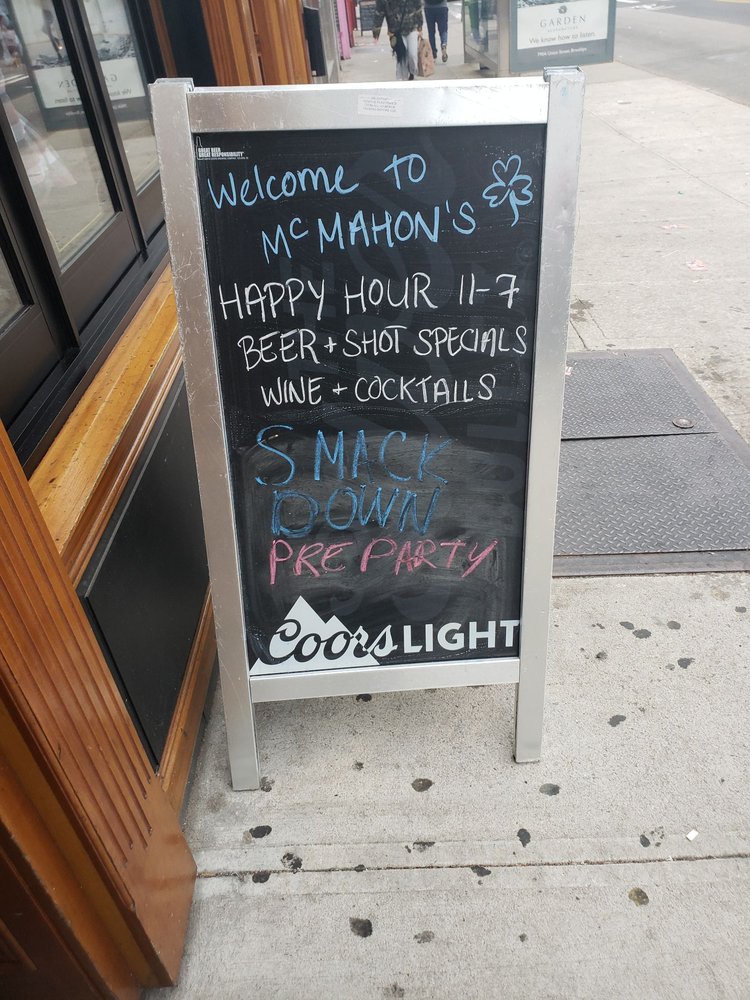 GARDEN
We know how to listen.
GREAT BEER
GREAT RESPONSIBILITY
Welcome to
McMAHON'S
HAPPY HOUR 11-7
BEER + SHOT SPECIALS
WINE + COCKTAILS
SMACK
DOWN
PRE PARTY
Coors LIGHT